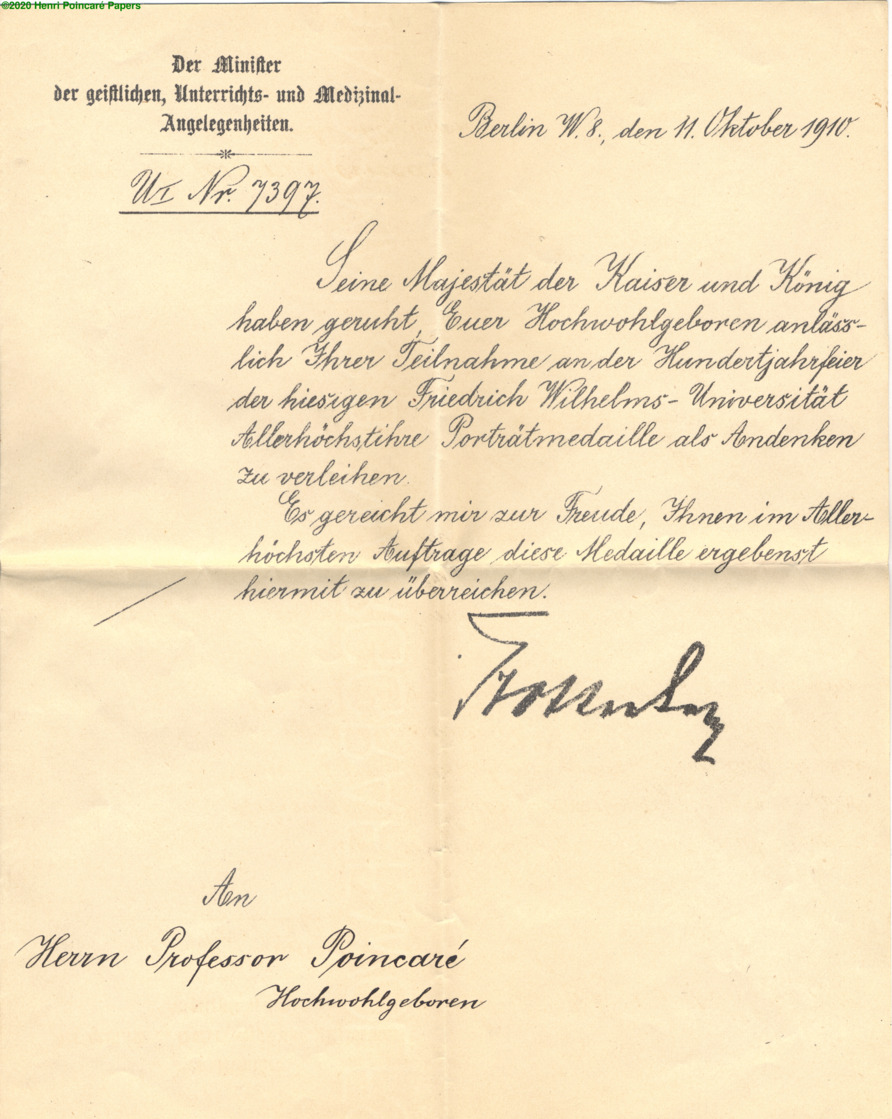 ©2020 Henri Poincaré Papers
Der Minister
der geistlichen, Unterrichts- und Medizinal-
Angelegenheiten.
Berlin W. 8., den 11. Oktober 1910.
UI Nr. 7397.
Seine Majestät der Kaiser und König
haben geruht, Euer Hochwohlgeboren anläss-
lich Ihrer Teilnahme an der Hundertjahrfeier
der hiesigen Friedrich Wilhelms-Universität
Allerhöchstihre Porträtmedaille als Andenken
zu verleihen.
Es gereicht mir zur Freude, Ihnen im Aller-
höchsten Auftrage diese Medaille ergebenst
hiermit zu überreichen.
An
Herrn Professor Poincaré
Hochwohlgeboren